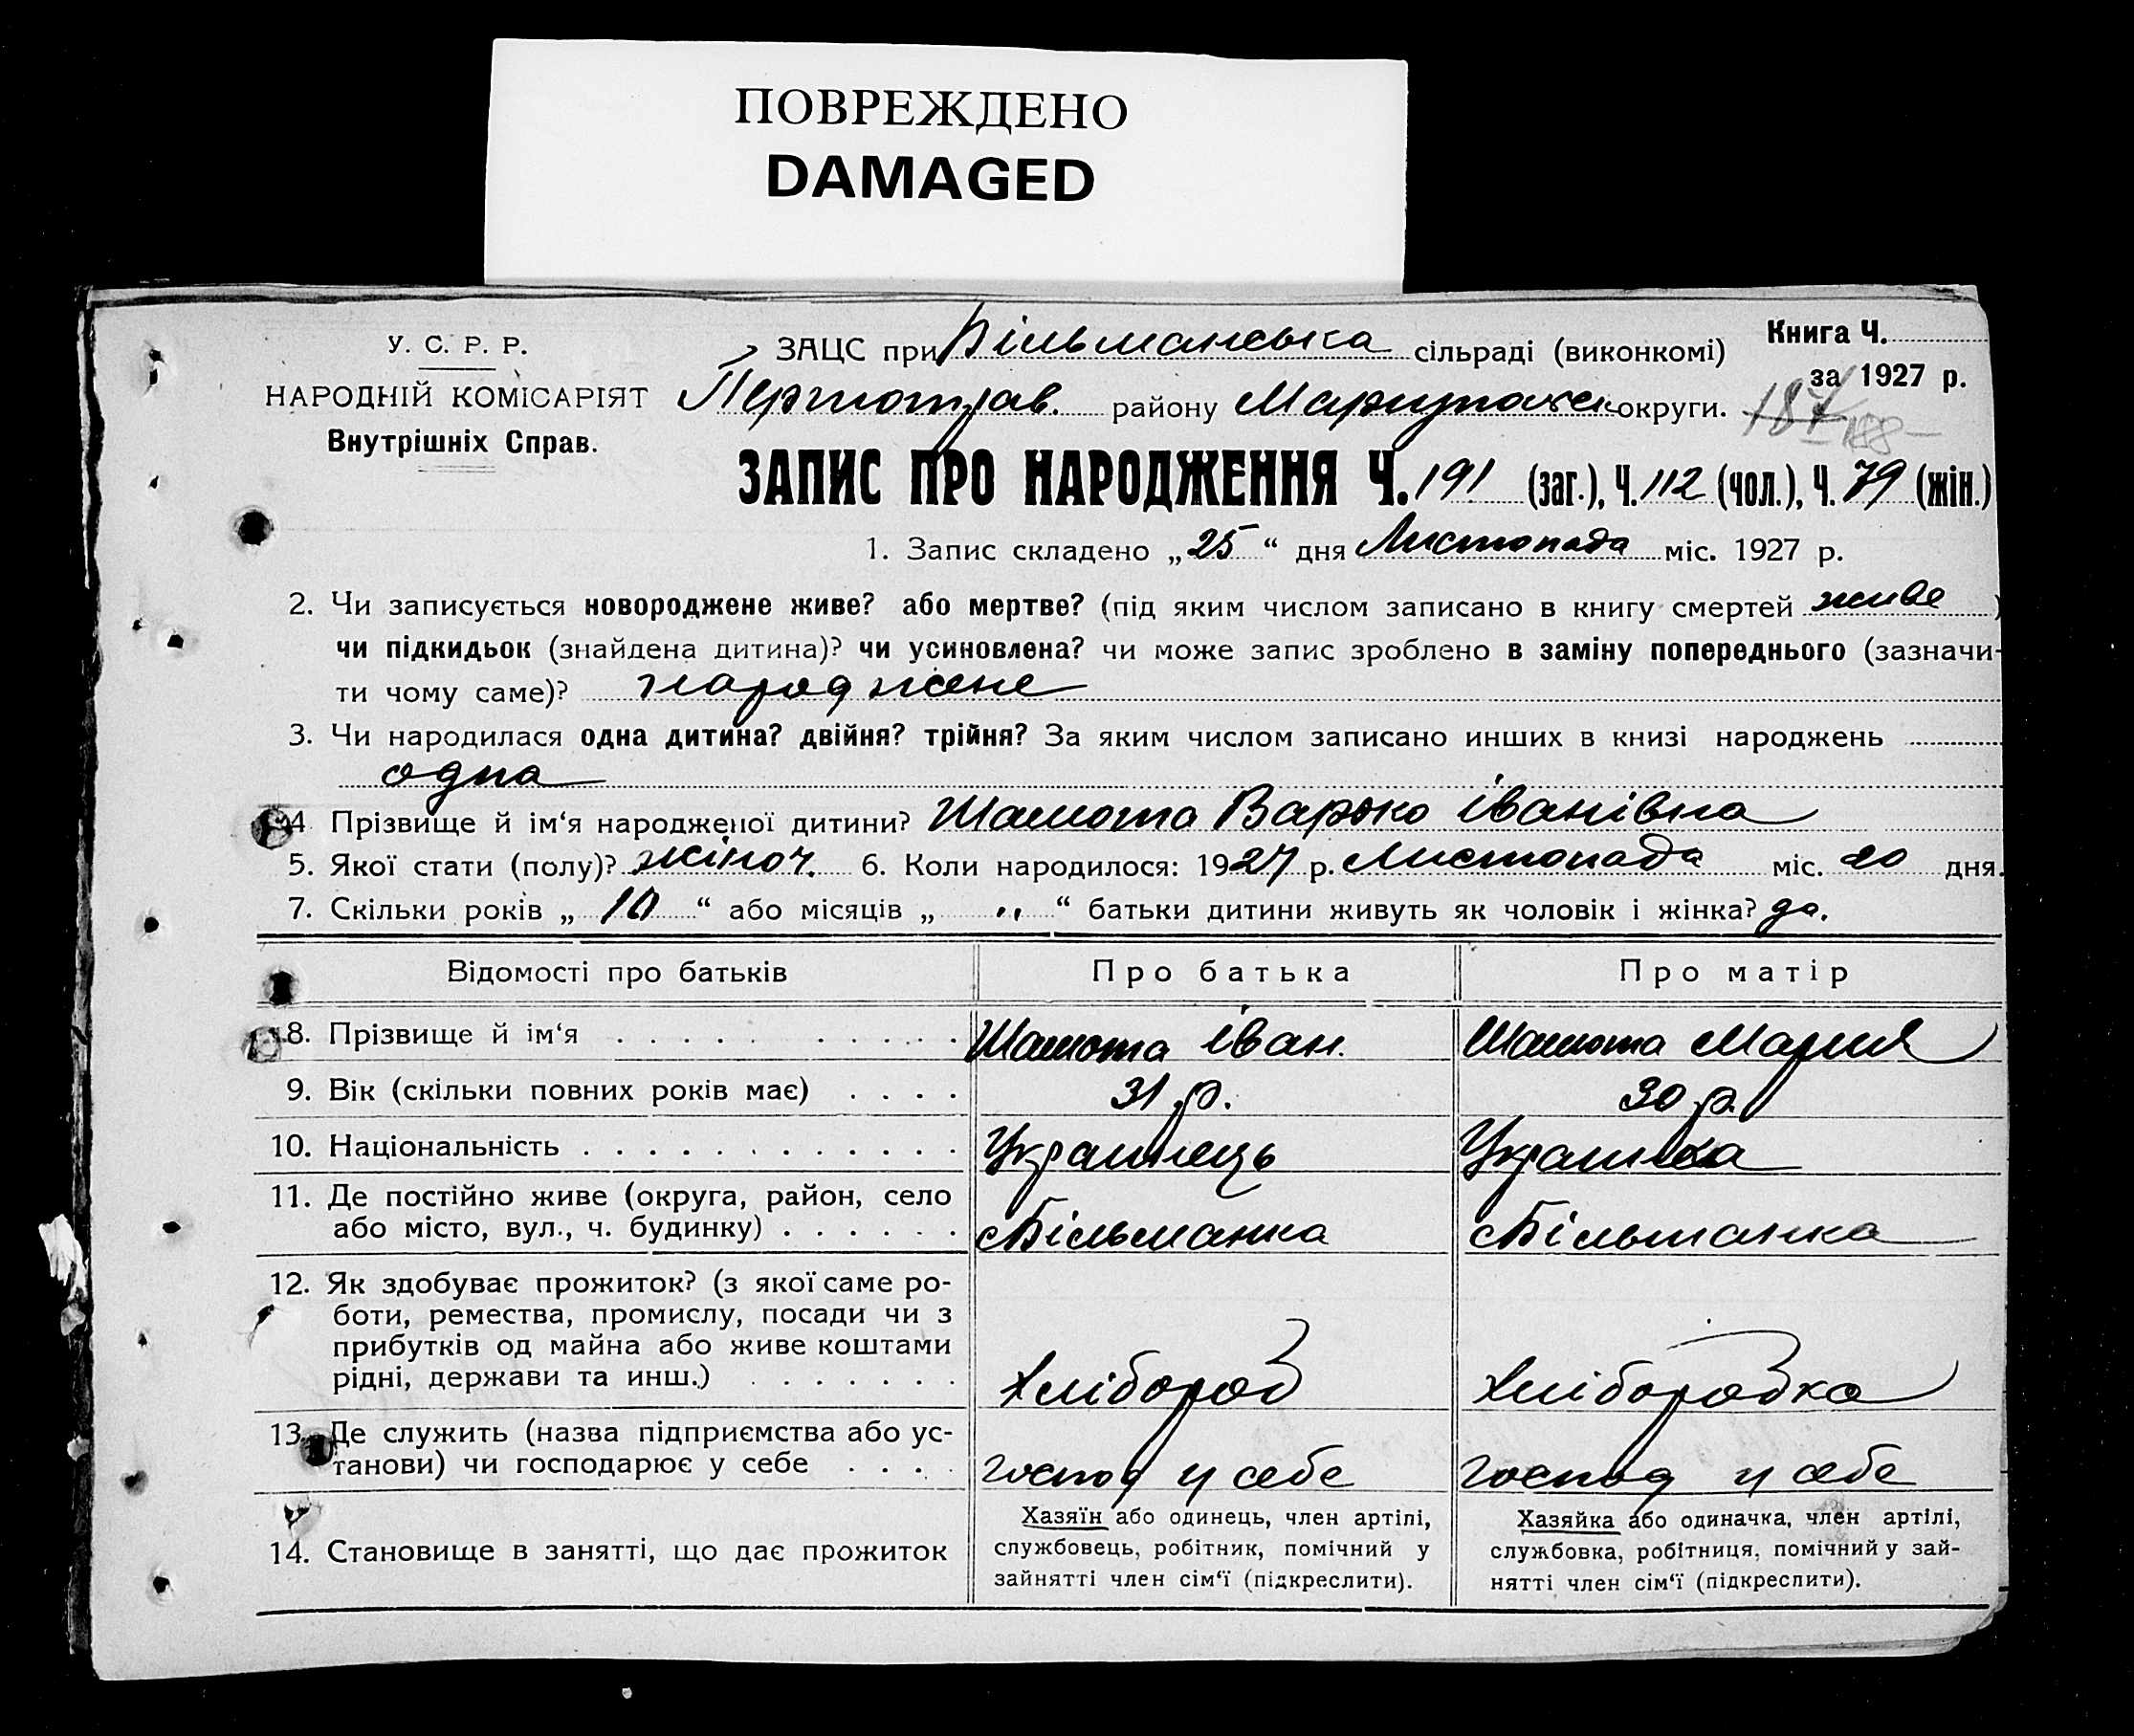 ПОВРЕЖДЕНО
DAMAGED
У. С. Р. Р.
НАРОДНІЙ КОМІСАРІЯТ
Внутрішніх Справ.
ЗАЦС при Більманська сільраді (виконкомі)
Книга Ч.
за 1927 р.
Першотрав. району Маріупольськ округи.
187 188
ЗАПИС ПРО НАРОДЖЕННЯ Ч. 191 (заг.), Ч. 112 (чол.), Ч. 79 (жін.)
1. Запис складено „25“ дня Листопада міс. 1927 р.
2. Чи записується новороджене живе? або мертве? (під яким числом записано в книгу смертей живе )
чи підкидьок (знайдена дитина)? чи усиновлена? чи може запис зроблено в заміну попереднього (зазначи-
ти чому саме)? народжене
3. Чи народилася одна дитина? двійня? трійня? За яким числом записано инших в книзі народжень
одна
4 Прізвище й ім‘я народженої дитини? Шамота Варько Іванівна
5. Якої стати (полу)? жіноч. 6. Коли народилося: 1927 р. Листопада міс. 20 дня.
7. Скільки років „ 10 “ або місяців „ ,, “ батьки дитини живуть як чоловік і жінка? да.
Відомості про батьків Про батька Про матір
8. Прізвище й ім‘я Шамота Іван. Шамота Мария
9. Вік (скільки повних років має) 31 р. 30 р.
10. Національність Українець Українка
11. Де постійно живе (округа, район, село
або місто, вул., ч. будинку) Більманка Більманка
12. Як здобуває прожиток? (з якої саме ро-
боти, ремества, промислу, посади чи з
прибутків од майна або живе коштами
рідні, держави та инш.) Хлібороб Хліборобка
13. Де служить (назва підприємства або ус-
танови) чи господарює у себе господ у себе господ у себе
14. Становище в занятті, що дає прожиток
Хазяїн або одинець, член артілі,
службовець, робітник, помічний у
зайнятті член сім‘ї (підкреслити).
Хазяйка або одиначка, член артілі,
службовка, робітниця, помічний у зай-
нятті член сім‘ї (підкреслити).